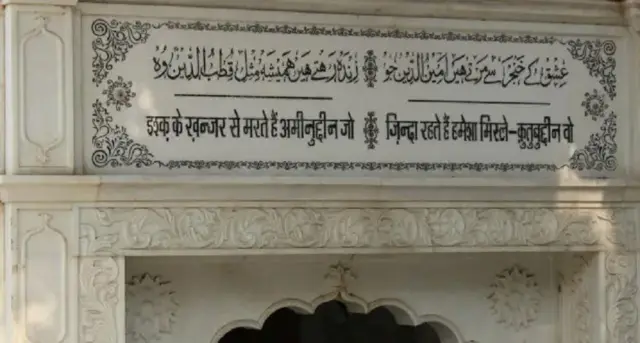 عشق کے خنجر سے مرتے ہیں امین الدین جو زندہ رہتے ہیں ہمیشہ مثل قطب الدین وہ
इश्क़ के ख़न्जर से मरते हैं अमीनुद्दीन जो ज़िन्दा रहते हैं हमेशा मिस्ले-क़ुतुबुद्दीन वो